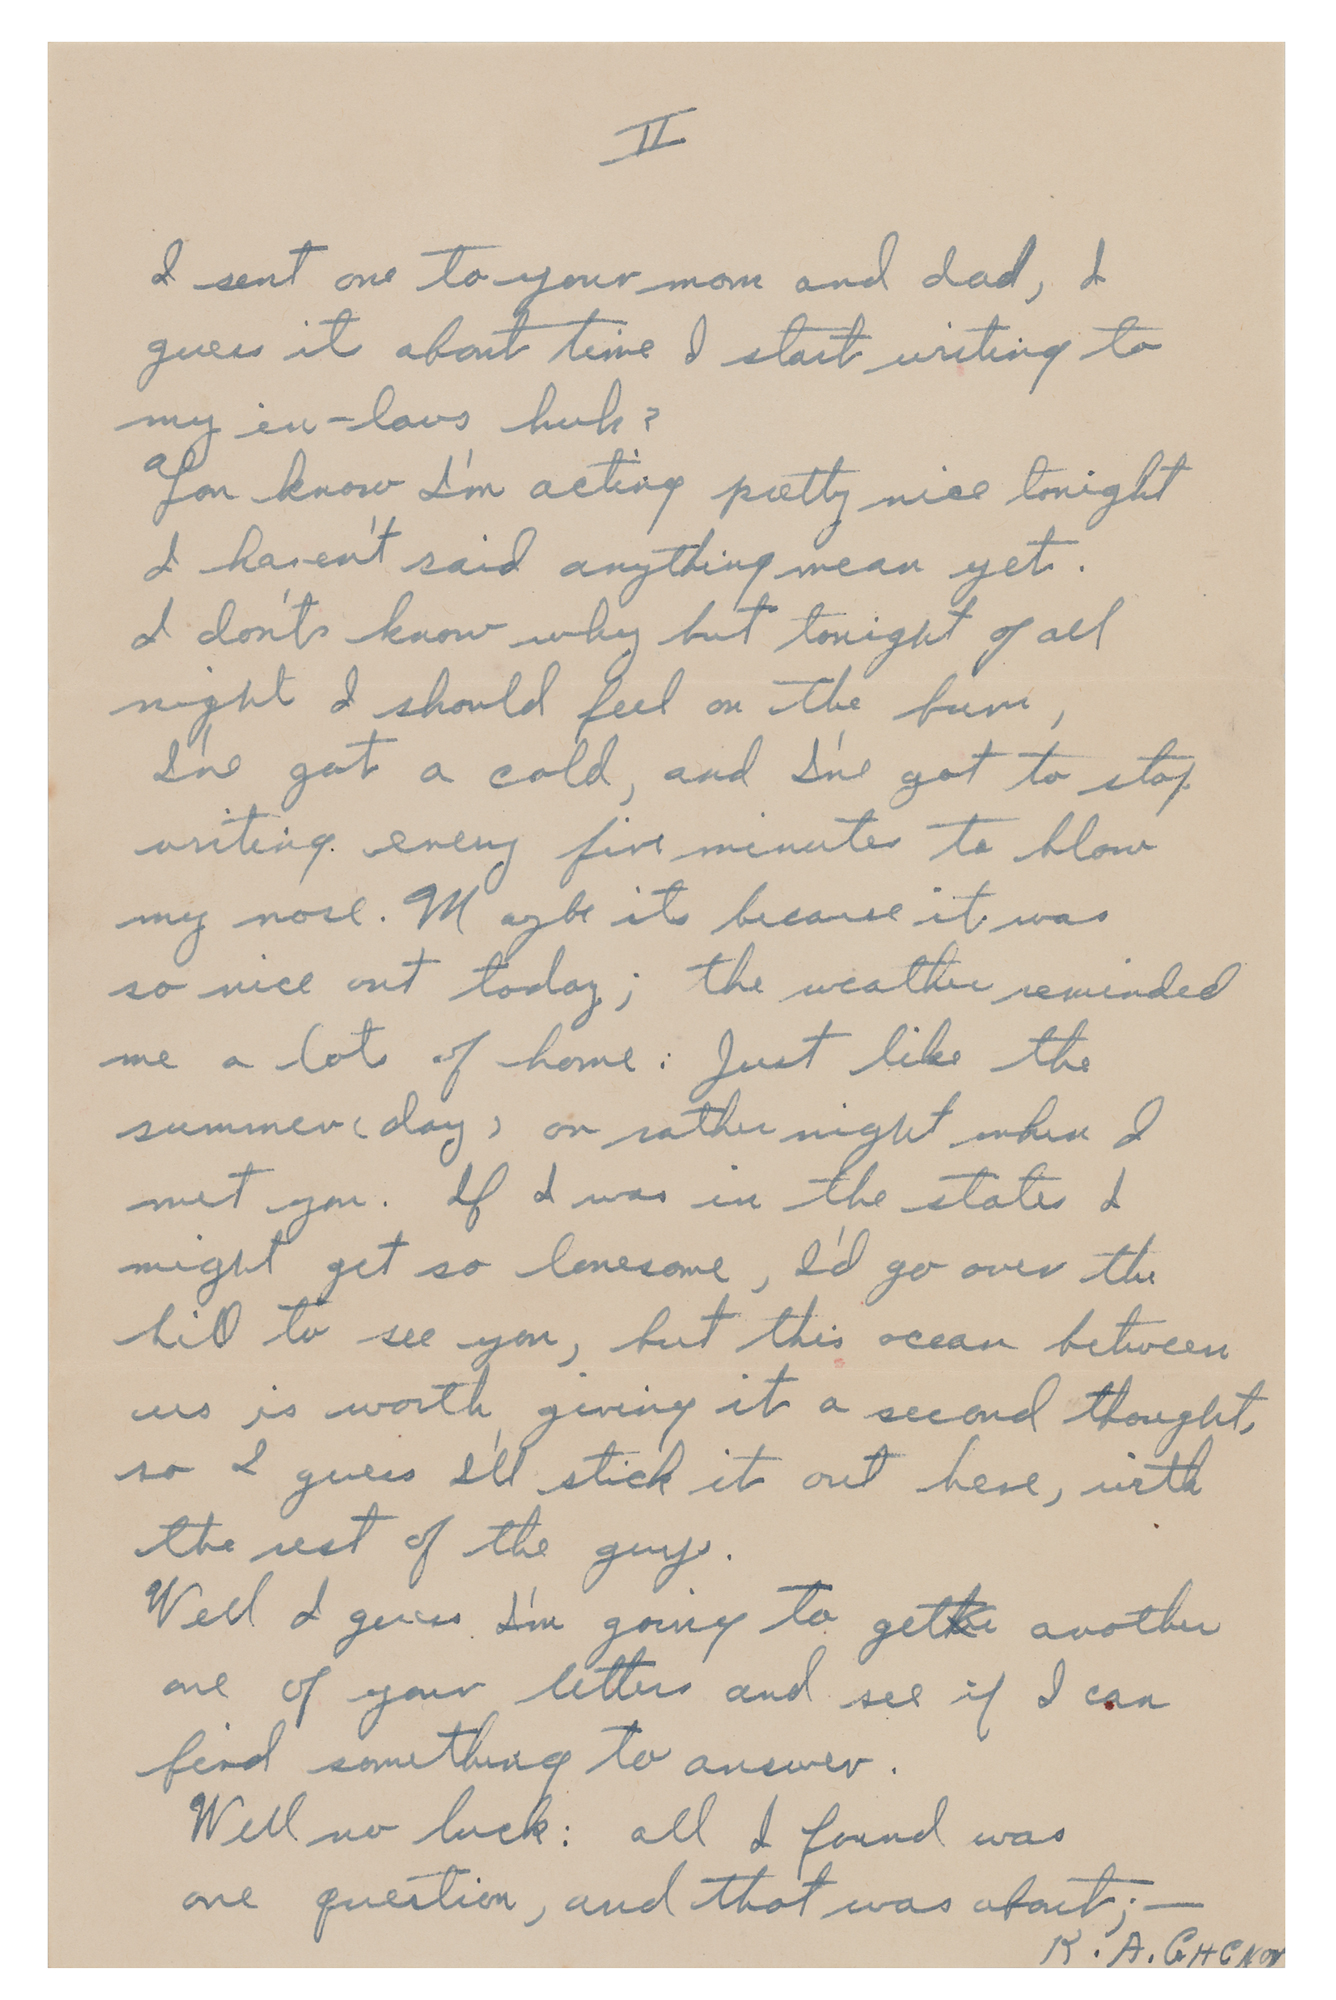 II
I sent one to your mom and dad, I
guess it about time I start writing to
my in-laws huh?
You know I'm acting pretty nice tonight
I haven't said anything mean yet.
I don't know why but tonight of all
night I should feel on the bum,
I've got a cold, and I've got to stop
writing every five minutes to blow
my nose. Maybe its because it was
so nice out today; the weather reminded
me a lot of home: Just like the
summer (day) or rather night when I
met you. If I was in the states I
might get so lonesome, I'd go over the
hill to see you, but this ocean between
us is worth giving it a second thought,
so I guess I'll stick it out here, with
the rest of the guys.
Well I guess I'm going to get another
one of your letters and see if I can
find something to answer.
Well no luck: all I found was
one question, and that was about;—
K. A.